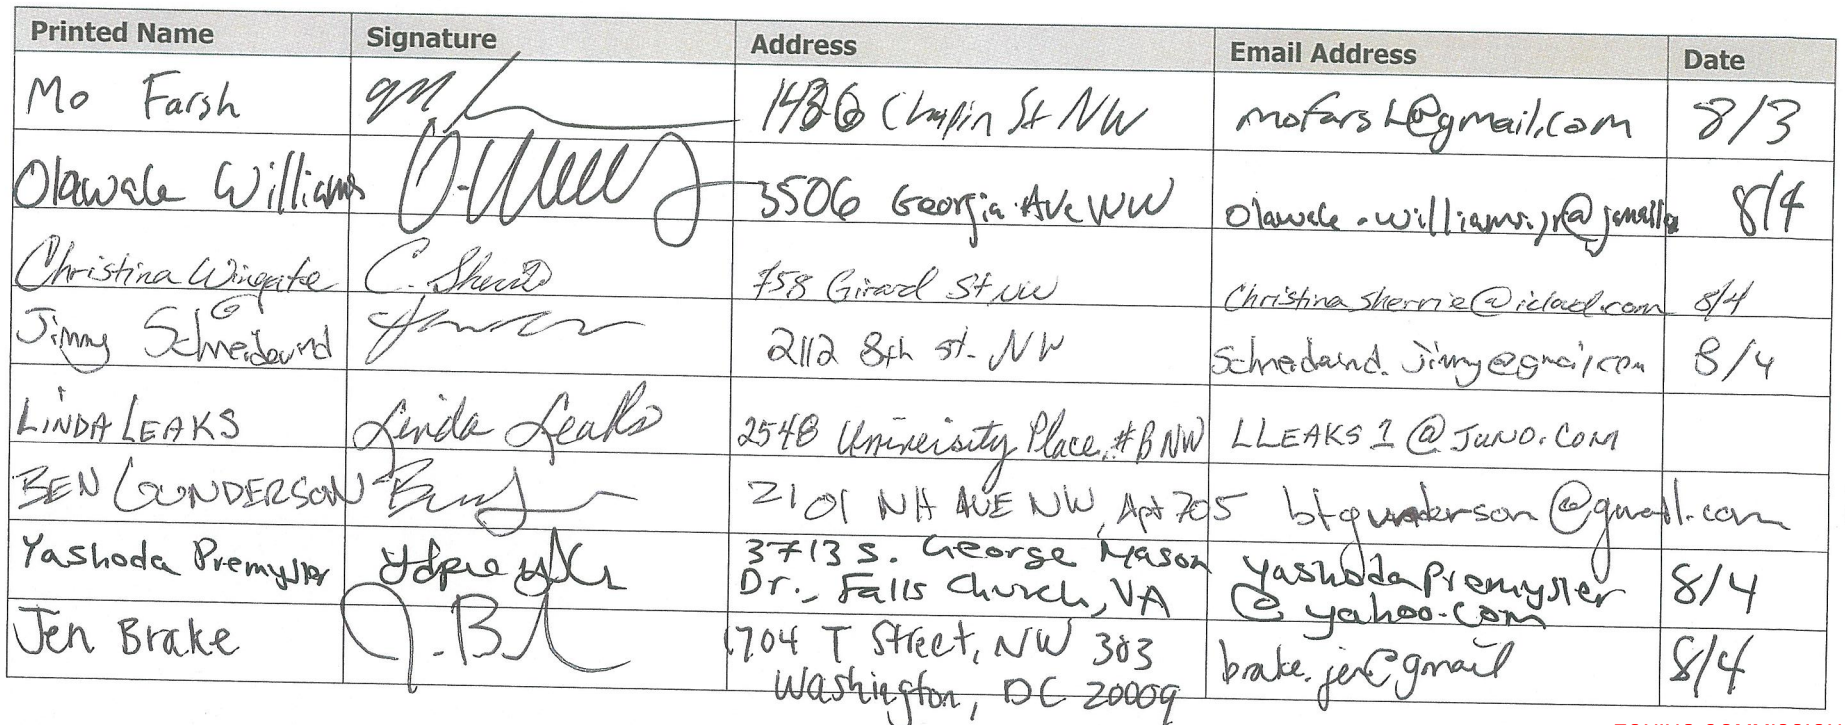 Printed Name Signature Address Email Address Date
Mo Farsh Chapin St NW mofarsh@gmail.com 8/3
Olawale Williams 3506 Georgia Ave NW olawale.williams.jr@gmail.com 8/4
Christina Wingate 758 Girard St NW Christinasherrie@icloud.com 8/4
Jimmy Schneidewind 2112 8th St. NW 8/4
LINDA LEAKS Linda Leaks 2548 University Place, #B NW LLEAKS1@JUNO.COM
BEN GUNDERSON 2101 NH AVE NW, Apt 705 btgunderson@gmail.com
Yashoda Premysler 3713 S. George Mason
Dr., Falls Church, VA yashodapremysler
@yahoo.com 8/4
Jen Brake J. B 1704 T Street, NW 303
Washington, DC 20009 brake.jen@gmail 8/4